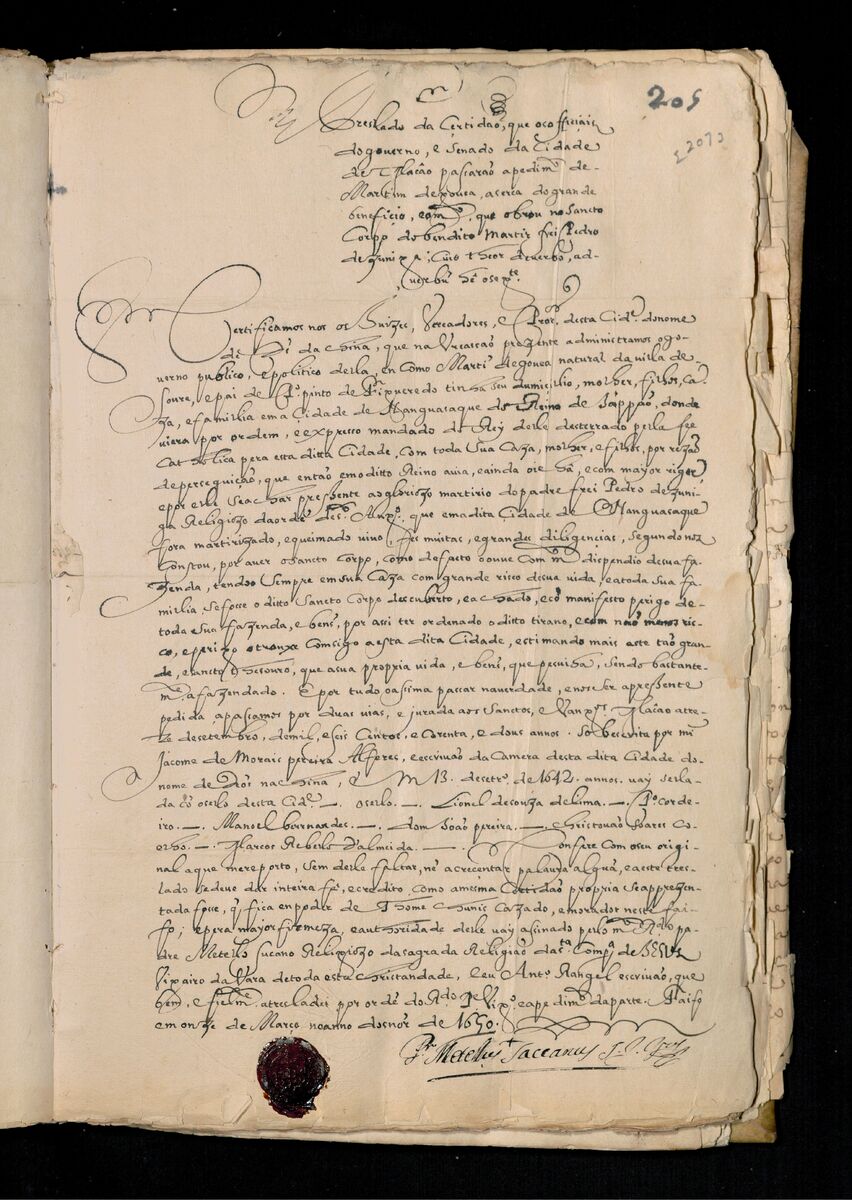 205
2073
Treslado da Certidaõ, que os officiais
do governo, e Senado da Cidade
de Macâo passaraõ a pedim.to de
Martim de gouea, acerca do grande
beneficio, e que obrou no Sancto
Corpo do bendito Martir frei Pedro
de Zuniga; Cuio theor de verbo, ad
verbũ hé o seg.te
Certificamos nos os Juizes, Vereadores, e Pro.dor desta Cid.e do nome
de D.s da China, que na Vreasaõ prezente administramos o go-
verno publico, e politico della, en como Marti degouea natural da villa de
soure, e pai de P.o pinto de Figueredo tinha seu dumicilio, molher, filhos, ca-
za, e familia em a Cidade de Nanguasaque do Reino de Jappaõ, donde
viera por ordem, e expresso mandado do Rey delle desterrado pella fee
Catholica pera esta ditta Cidade, com toda sua Caza, molher, e filhos, por rezaõ
de perseguiçaõ, que entaõ em o ditto Reino auia, e ainda oie hâ, e com mayor rigor
e por elle se achar presente ao gloriozo martirio do padre frei Pedro de zuni-
ga Religiozo da ordẽ de S.to Aug.o, que em a dita Cidade de Nanguasaque
fora martirizado, e queimado vivo, fes muitas, e grandes diligencias, segundo nos
Constou, por auer o Sancto Corpo, como de facto o ouue com m.to dispendio de sua fa-
zenda, tendo o sempre em sua Caza com grande risco de sua vida, e a toda sua fa-
milia, se fosse o ditto Sancto Corpo descuberto, e achado, e cõ manifesto perigo de
toda e sua fazenda, e bens, por assi ter ordenado o ditto tirano, e com naõ menos ris-
co, e perigo o trouxe Comsigo a esta dita Cidade, estimando mais este taõ gran-
de, e sancto thesouro, que a sua propria vida, e bens, que pesuiha, sendo bastante-
m.te afazendado. E por tudo o assima passar na verdade, e nos ser a presente
pedida, a passamos por duas vias, e jurada aos Sanctos, e Euang.os Macâo a tre-
ze de setembro, de mil, e seis Centos, e Corenta, e dous annos. Sobescrita por mi
Jacome de Morais pereira Alferes, e escrivaõ da Camera desta dita Cidade do
nome de Deos na China, ẽ 13. de setr.o de 1642. annos. vay sella-
da cõ o sello desta Cid.e — O sello. — Lionel de souza de lima. — P.o Cordei-
iro. — Manoel bernardes. — dom Joaõ pereira. — Christouaõ Soares Co-
elho. — Marcos Rebelo d'almeida — Confere com o seu origi-
nal a que me reporto, sem delle faltar, nẽ acrecentar palaura algũa, e a este tres-
lado se deue dar inteira fe, e credito, Como a mesma Certidaõ propria se apprezen-
tada fosse, q̃ fica en poder de Thome Chunis Cazado, e morador neste fai-
fo; e pera mayor firmeza, e authoridade delle vay assinado pello m.to R.do pa-
dre Metello sucano Religiozo da sagrada Religiaõ da S.ta Comp.a de JESUS
Vigairo da Vara de toda esta Christandade, E eu Ant.o Rangel escrivaõ, que
bem, e fielm.te a tresladei por ordẽ do R.do P. Vig.ro e a pedim.to da parte. Faifo
em onze de Março no anno do snõr de 1650.
P.e Metellus Saccanus